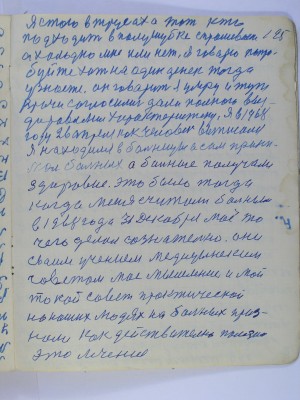 Я стою в трусах а тот кто
подходит в полушубке спрашивает 125
а холодно мне или нет, я говорю попро-
буйте хоть на один денек тогда
узнаете, он говорит я умру и тут
врачи согласились дали полного
здоровому характеристику, я в 1968
году 2 апреля как человек выписали
я находился в больнице а сам
больных а больные получали
здоровие. Это было тогда
когда меня считали больным
в 1968 года 31 декабря моё то
чего делал сознательно. они
своим учением медицинским
советом мое мышление и мой
такой совет практической
на наших людях на больных приз-
нали как действительно
это лечение